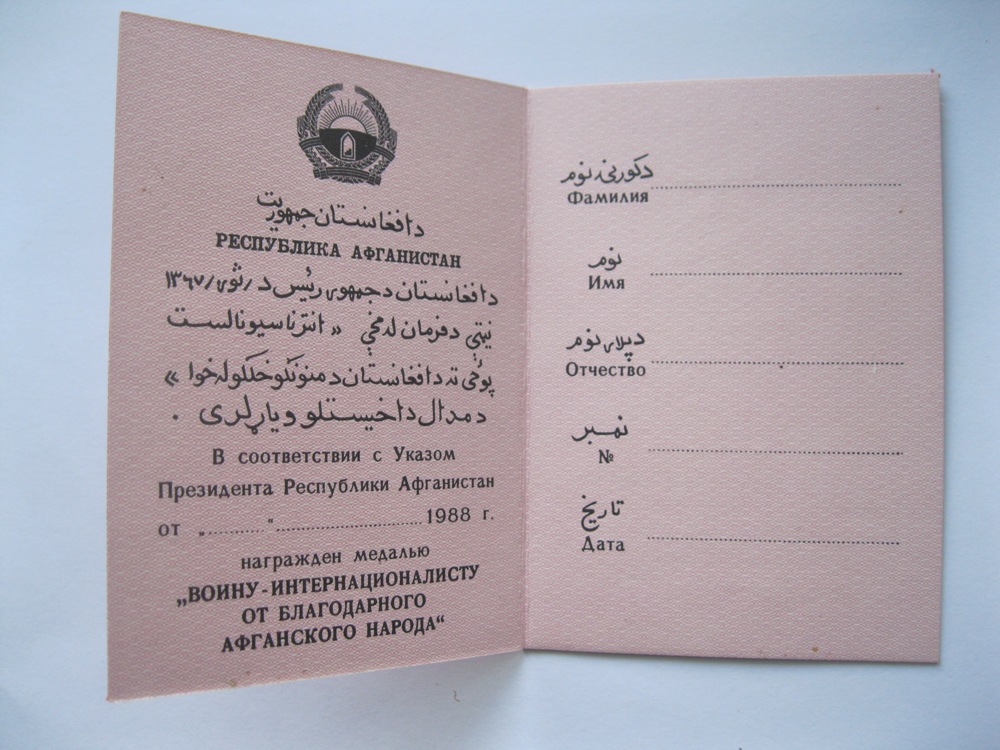 دافغانستان جمهوریت
РЕСПУБЛИКА АФГАНИСТАН
دافغانستان دجمهوری رئیس د / ثوی / ۱۳۶۷
نیټې دفرمان له مخې «انترناسیونالست
پوځی ته دافغانستان دمنونکو خلکو له خوا»
دمدال داخیستلو ویاړ لری .
В соответствии с Указом
Президента Республики Афганистан
от „..........“.......................... 1988 г.
награжден медалью
„ВОИНУ-ИНТЕРНАЦИОНАЛИСТУ
ОТ БЛАГОДАРНОГО
АФГАНСКОГО НАРОДА“
دکورنی نوم
Фамилия
نوم
Имя
دپلار نوم
Отчество
نمبر
№
تاریخ
Дата